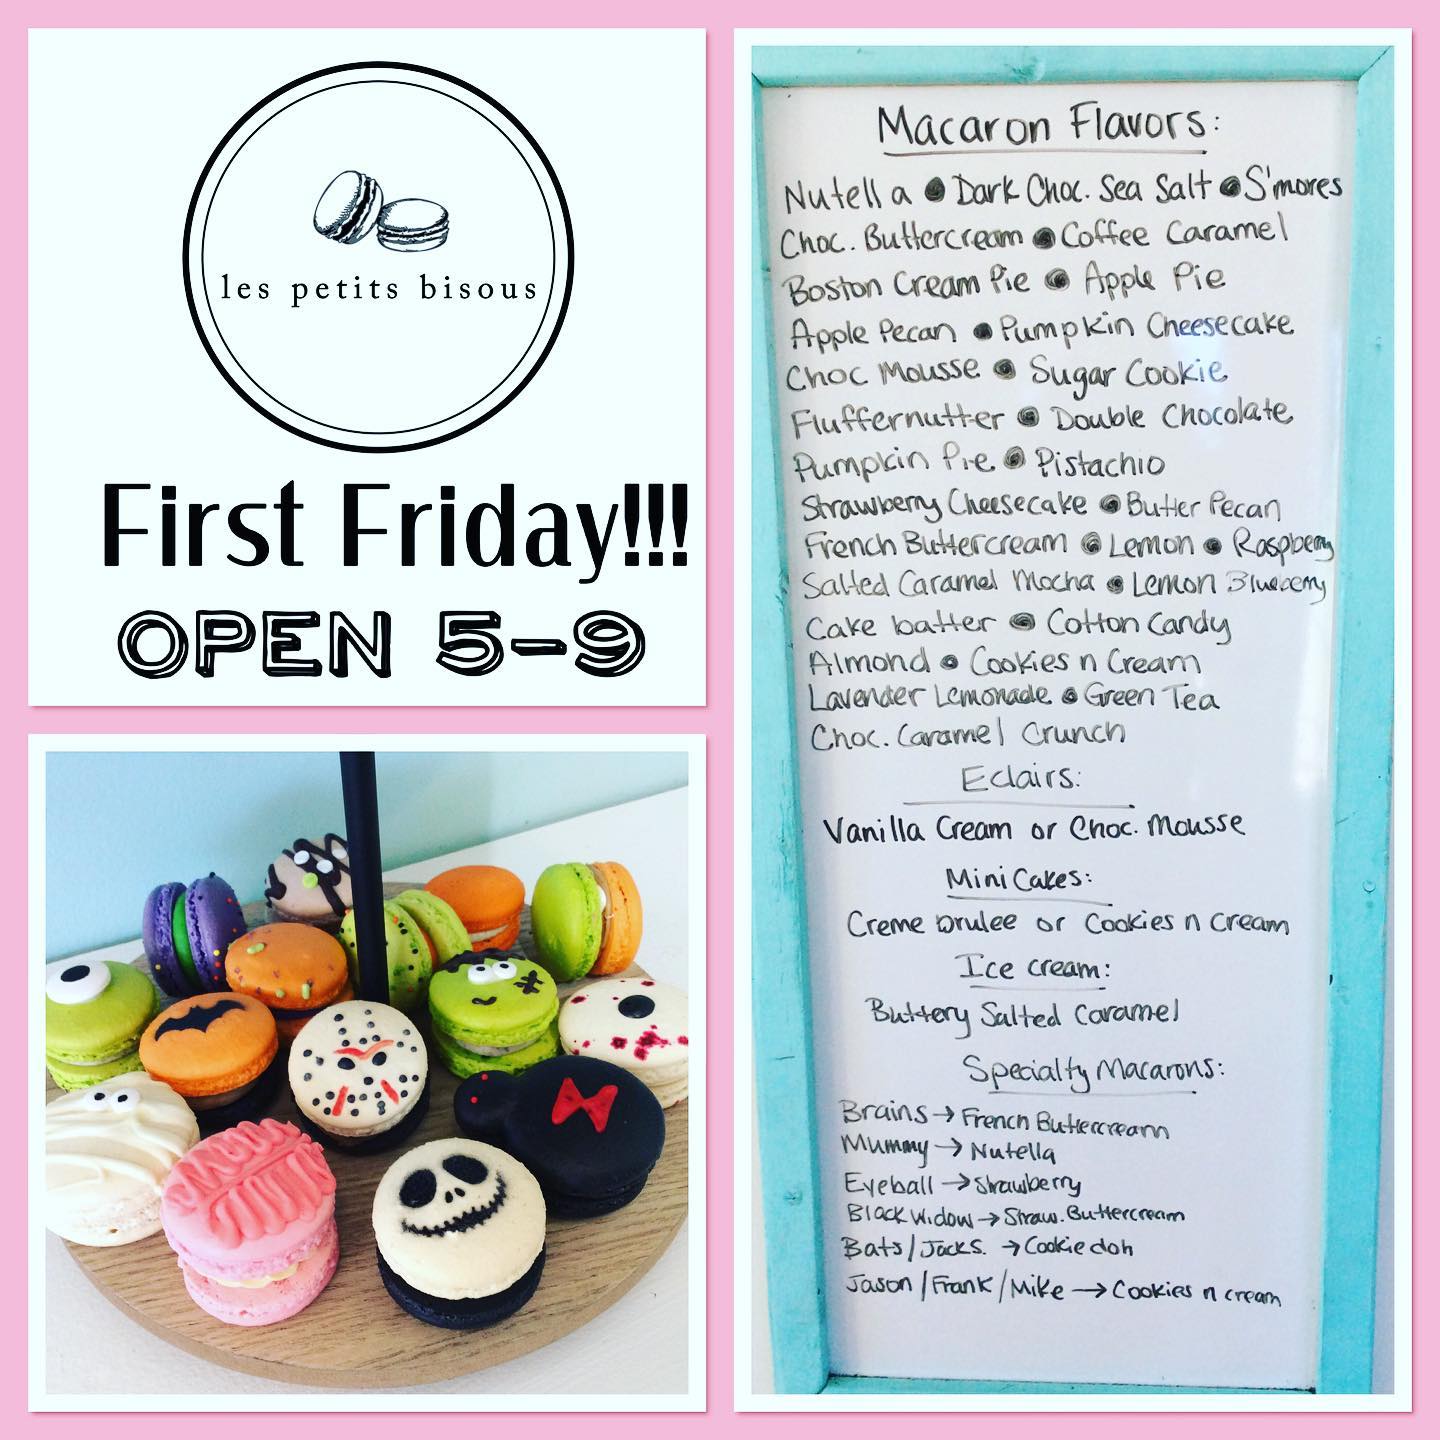 les petits bisous
First Friday!!!
OPEN 5-9
Macaron Flavors:
Nutella • Dark Choc. Sea Salt • S'mores
Choc. Buttercream • Coffee Caramel
Boston Cream Pie • Apple Pie
Apple Pecan • Pumpkin Cheesecake
Choc Mousse • Sugar Cookie
Fluffernutter • Double Chocolate
Pumpkin Pie • Pistachio
Strawberry Cheesecake • Butter Pecan
French Buttercream • Lemon • Raspberry
Salted Caramel Mocha • Lemon Blueberry
Cake batter • Cotton Candy
Almond • Cookies n Cream
Lavender Lemonade • Green Tea
Choc. Caramel Crunch
Eclairs:
Vanilla Cream or Choc. Mousse
Mini Cakes:
Creme brulee or Cookies n Cream
Ice cream:
Buttery Salted Caramel
Specialty Macarons:
Brains → French Buttercream
Mummy → Nutella
Eyeball → Strawberry
Black Widow → Straw. Buttercream
Bats/Jacks. → Cookie doh
Jason/Frank/Mike → Cookies n cream